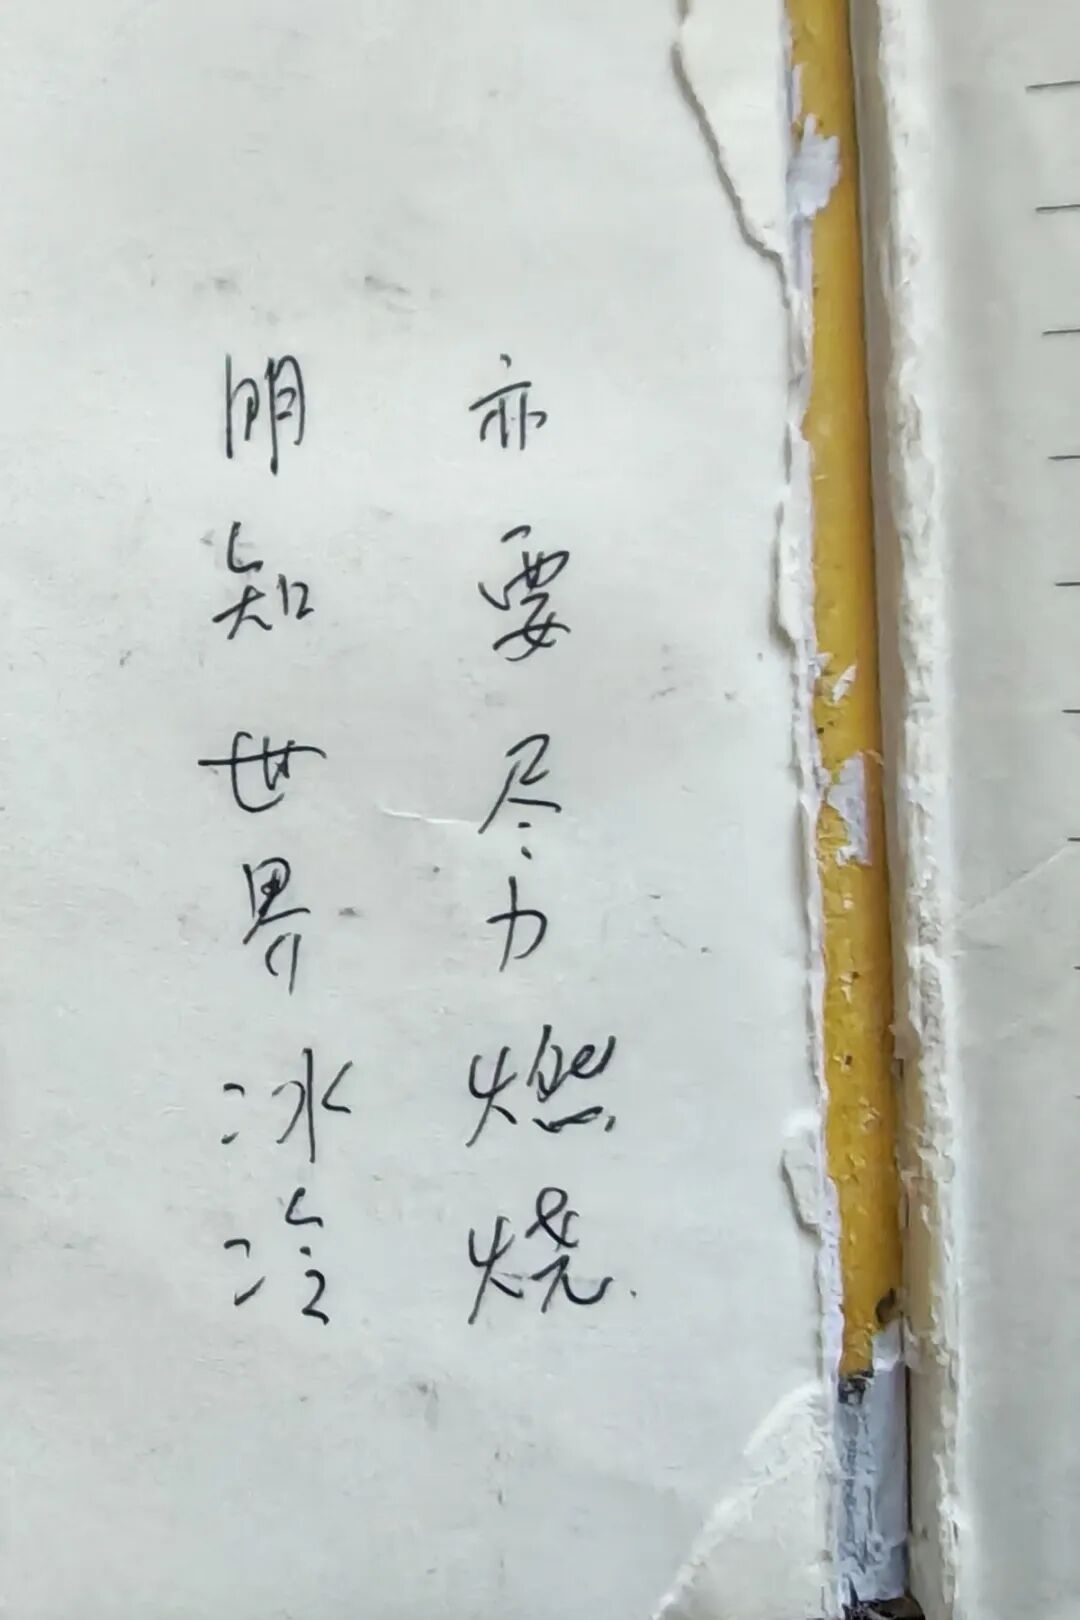 明知世界冰冷
亦要尽力燃烧